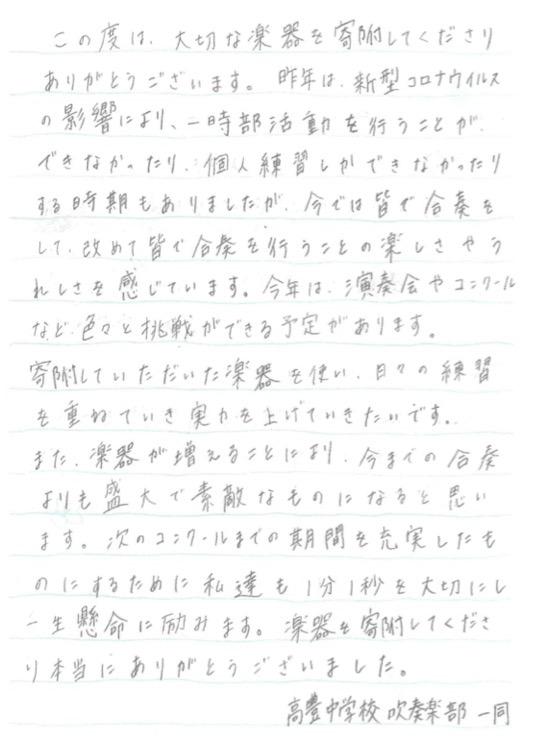 この度は、大切な楽器を寄附してくださり
ありがとうございます。昨年は、新型コロナウイルス
の影響により、一時部活動を行うことが、
できなかったり、個人練習しかできなかったり
する時期もありましたが、今では皆で合奏を
して、改めて皆で合奏を行うことの楽しさやう
れしさを感じています。今年は、演奏会やコンクール
など、色々と挑戦ができる予定があります。
寄附していただいた楽器を使い、日々の練習
を重ねていき実力を上げていきたいです。
また、楽器が増えることにより、今までの合奏
よりも盛大で素敵なものになると思い
ます。次のコンクールまでの期間を充実したも
のにするために私達も1分1秒を大切にし
一生懸命に励みます。楽器を寄附してくださ
り本当にありがとうございました。
高豊中学校 吹奏楽部 一同